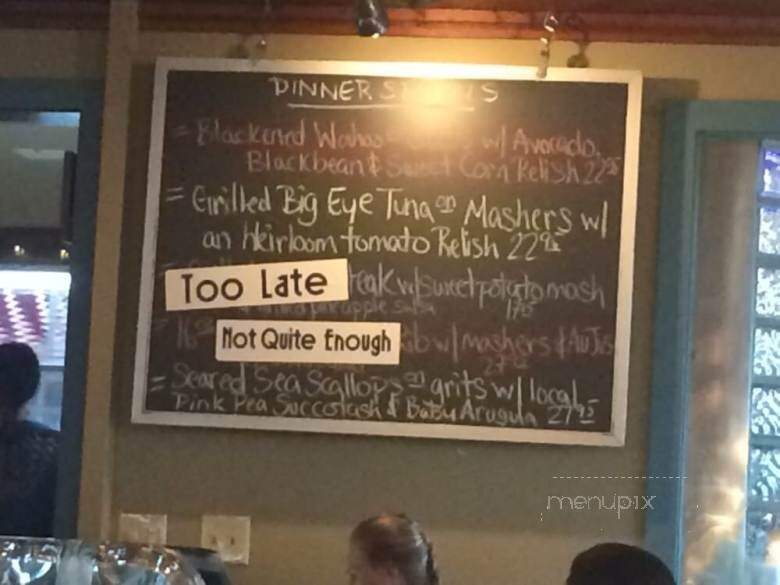 DINNER
= Blackened Wahoo w/ Avocado,
Blackbean & Sweet Corn Relish 22 95
= Grilled Big Eye Tuna on Mashers w/
an Heirloom tomato Relish 22 95
Too Late
w/ sweet potato mash
pineapple salsa
Not Quite Enough
w/ mashers & Au Jus
= Seared Sea Scallops on grits w/ local
Pink Pea Succotash & Baby Arugula 27 95
menupix